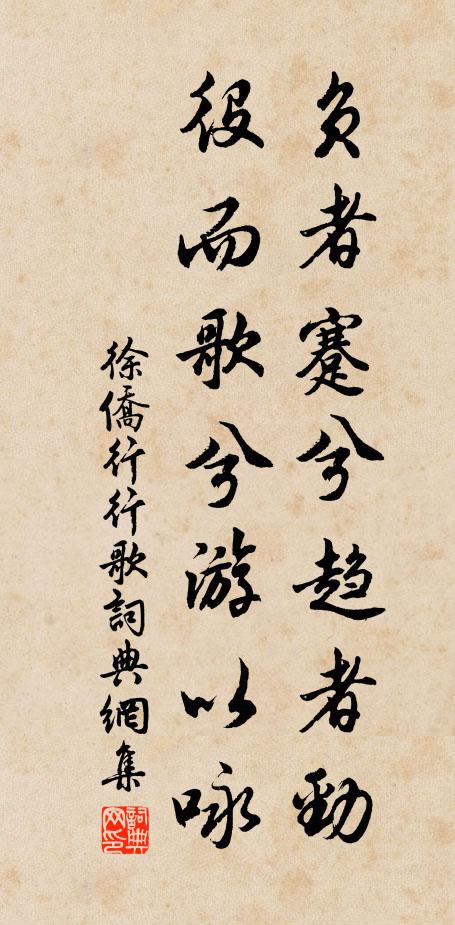 负者蹇兮趋者劲
役而歌兮游以咏
徐僑行行歌詞典網集
詞典网印